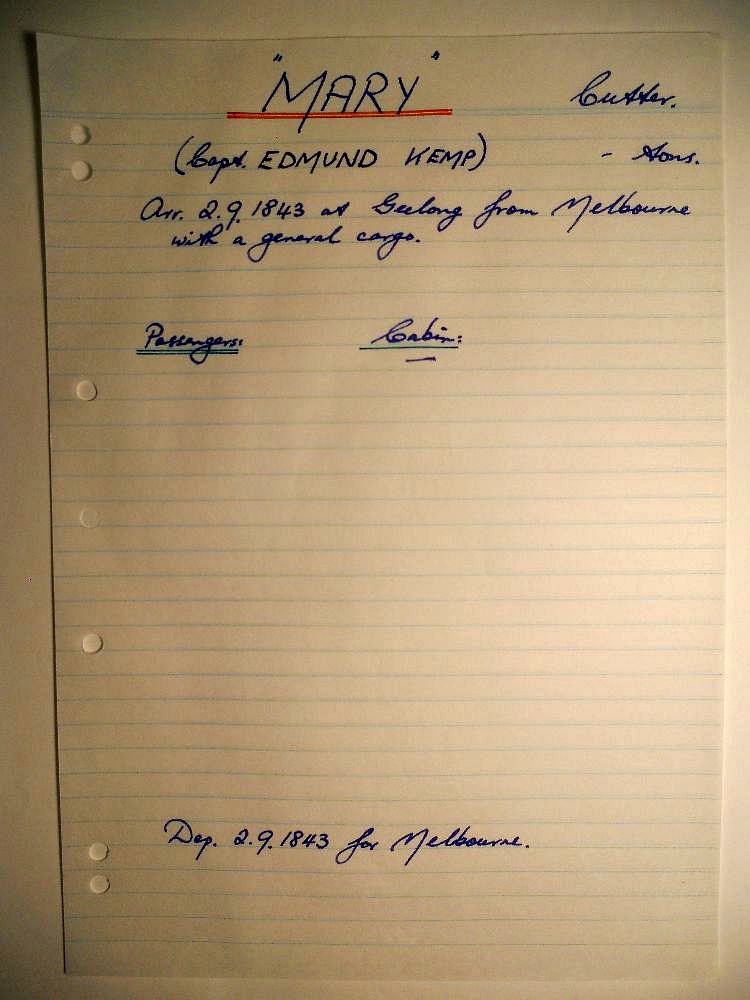 "MARY" Cutter.
(Capt. EDMUND KEMP) - tons.
Arr. 2.9.1843 at Geelong from Melbourne
with a general cargo.
Passengers: Cabin:
—
Dep. 2.9.1843 for Melbourne.